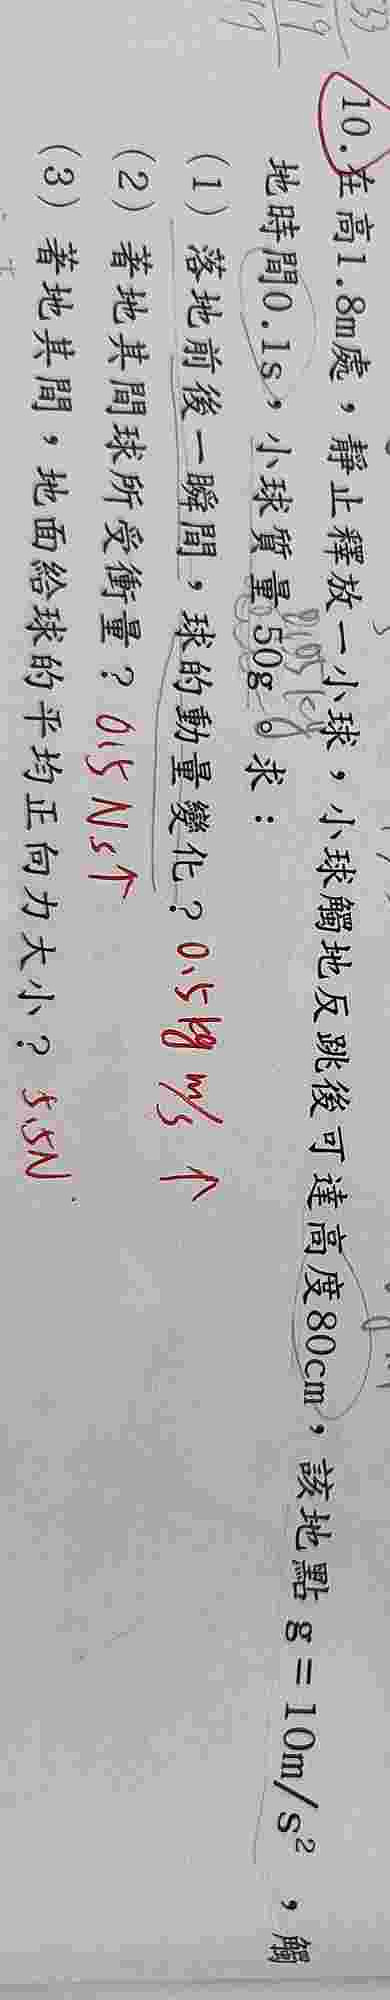 10.在高1.8m處，靜止釋放一小球，小球觸地反跳後可達高度80cm，該地點 g = 10m/s²，觸
地時間0.1s，小球質量50g。求：
0.05kg
(1) 落地前後一瞬間，球的動量變化？0.5kg m/s ↑
(2) 著地其間球所受衝量？0.5 N s↑
(3) 著地其間，地面給球的平均正向力大小？5.5N